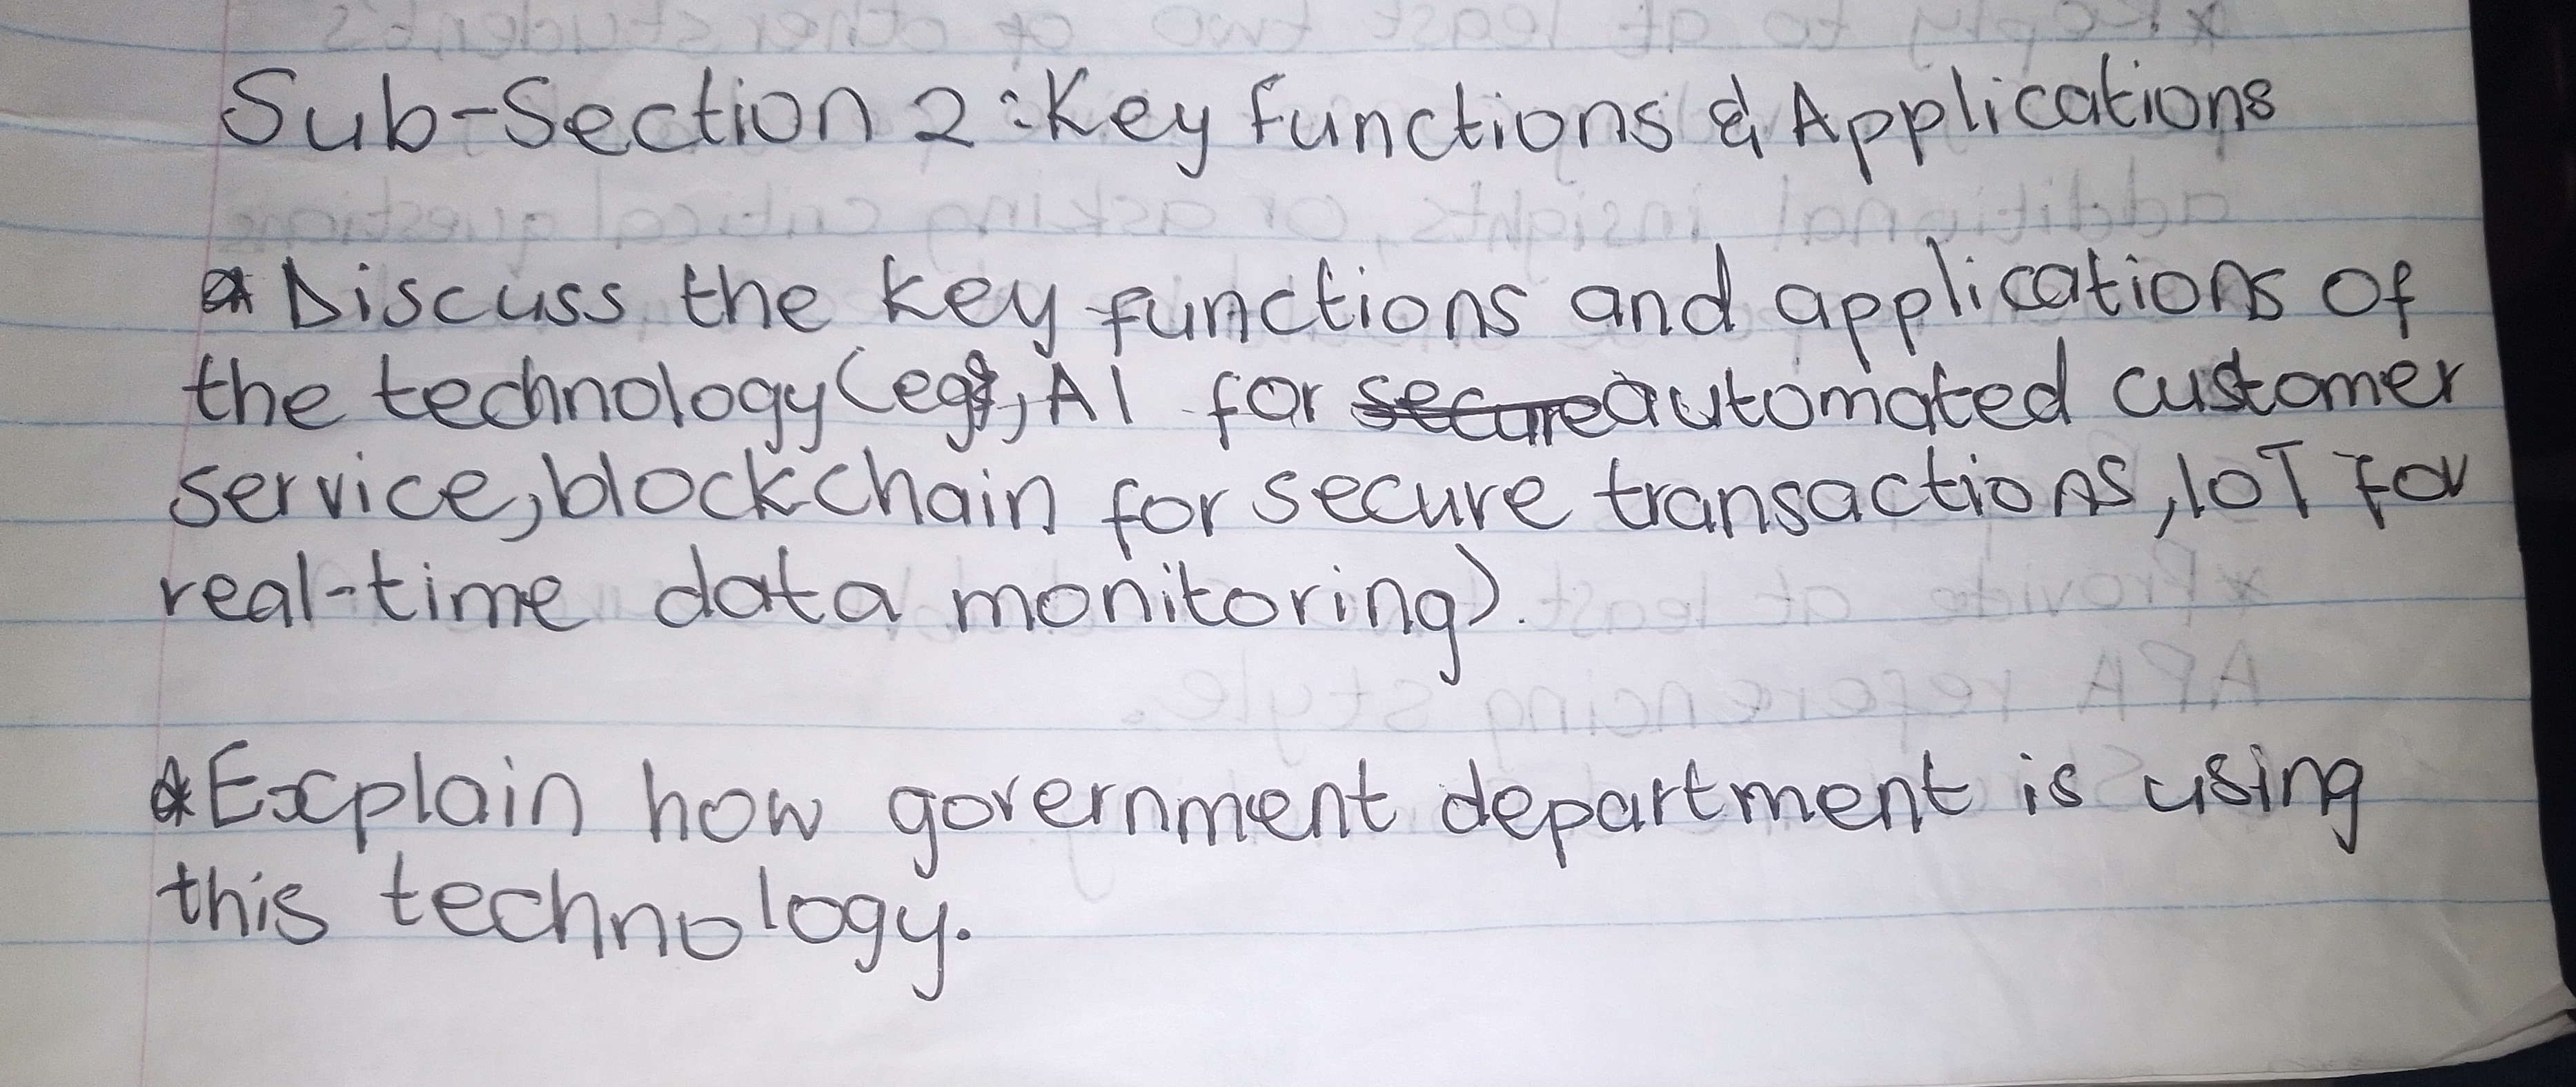 Sub-Section 2: Key functions & Applications
* Discuss the key functions and applications of
the technology (eg, AI for automated customer
service, blockchain for secure transactions, IoT for
real-time data monitoring).
* Explain how government department is using
this technology.